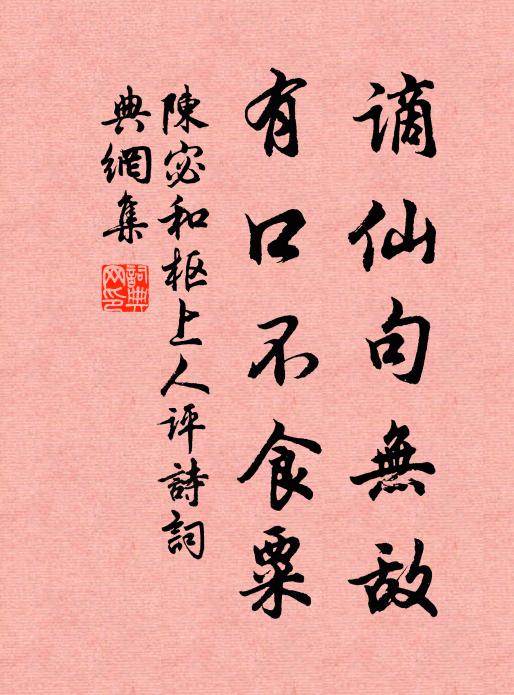 謫仙句無敌
有口不食粟
陳宓和枢上人评詩詞
典網集
詞典网印